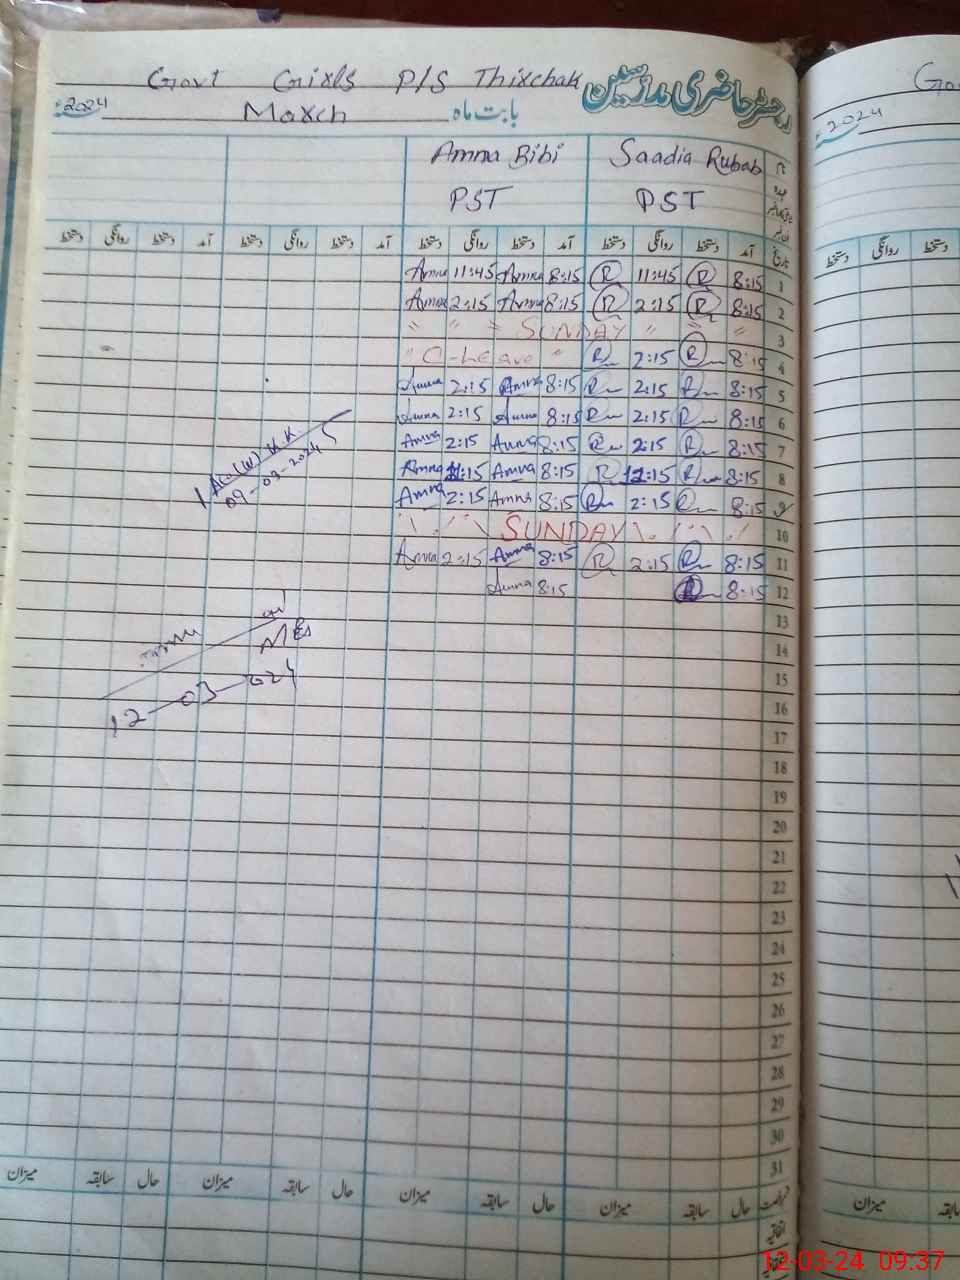 Govt Girls P/S Thirchak رجسٹر حاضری مدرسین
2024ء March بابت ماہ
Amna Bibi Saadia Rubab نام
PST PST عہدہ
دستخط روانگی دستخط آمد دستخط روانگی دستخط آمد دستخط روانگی دستخط آمد دستخط روانگی دستخط آمد تاریخ
Amna 11:45 Amna 8:15 R 11:45 R 8:15 1
Amna 2:15 Amna 8:15 R 2:15 R 8:15 2
" " " SUNDAY " " " 3
" C-Leave " R 2:15 R 8:15 4
Amna 2:15 Amna 8:15 R 2:15 R 8:15 5
Amna 2:15 Amna 8:15 R 2:15 R 8:15 6
Amna 2:15 Amna 8:15 R 2:15 R 8:15 7
Amna 8:15 R 12:15 R 8:15 8
Amna 2:15 Amna 8:15 R 2:15 R 8:15 9
SUNDAY 10
Amna 2:15 Amna 8:15 R 2:15 R 8:15 11
Amna 8:15 R 8:15 12
09-03-2024
12-03-024
13
14
15
16
17
18
19
20
21
22
23
24
25
26
27
28
29
30
31
میزان سابقہ حال میزان سابقہ حال میزان سابقہ حال میزان سابقہ حال
اتفاقیہ
2024ء
دستخط روانگی دستخط
میزان سابقہ
12-03-24 09:37